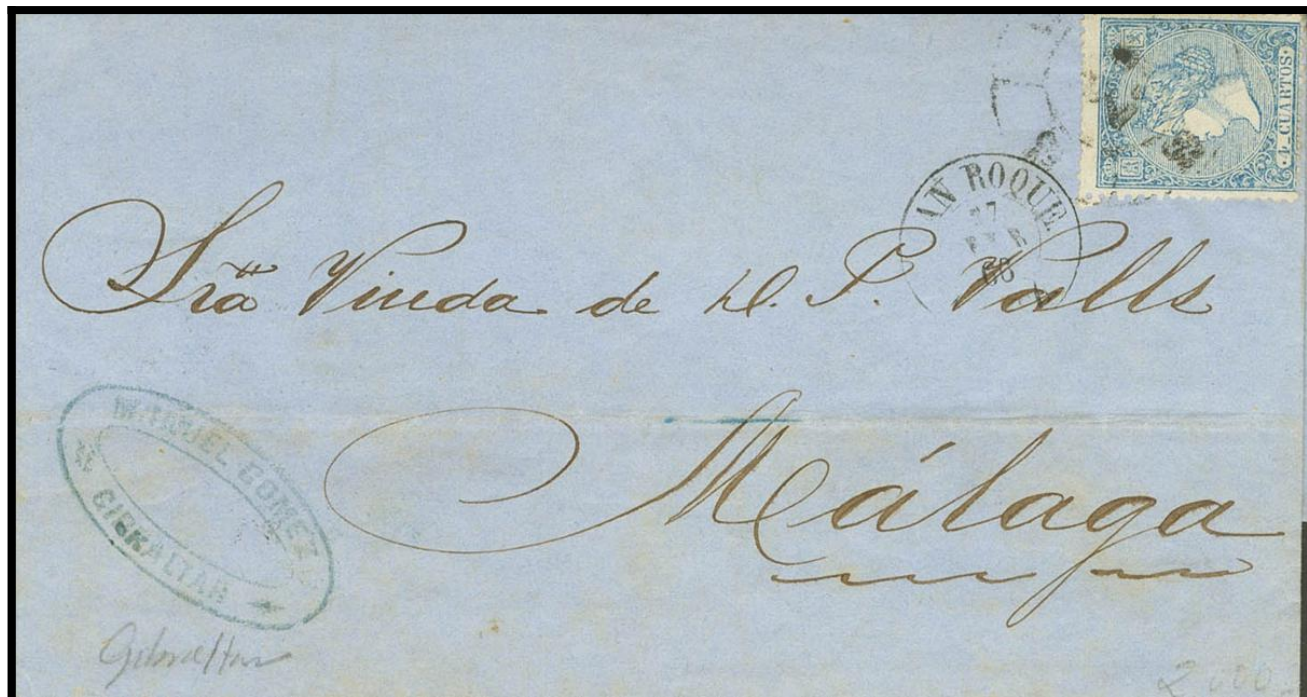 4 CUARTOS
AN ROQUE
68
Sra Viuda de D. P. Valls
Málaga
MANUEL GOMEZ
GIBRALTAR
Gibraltar